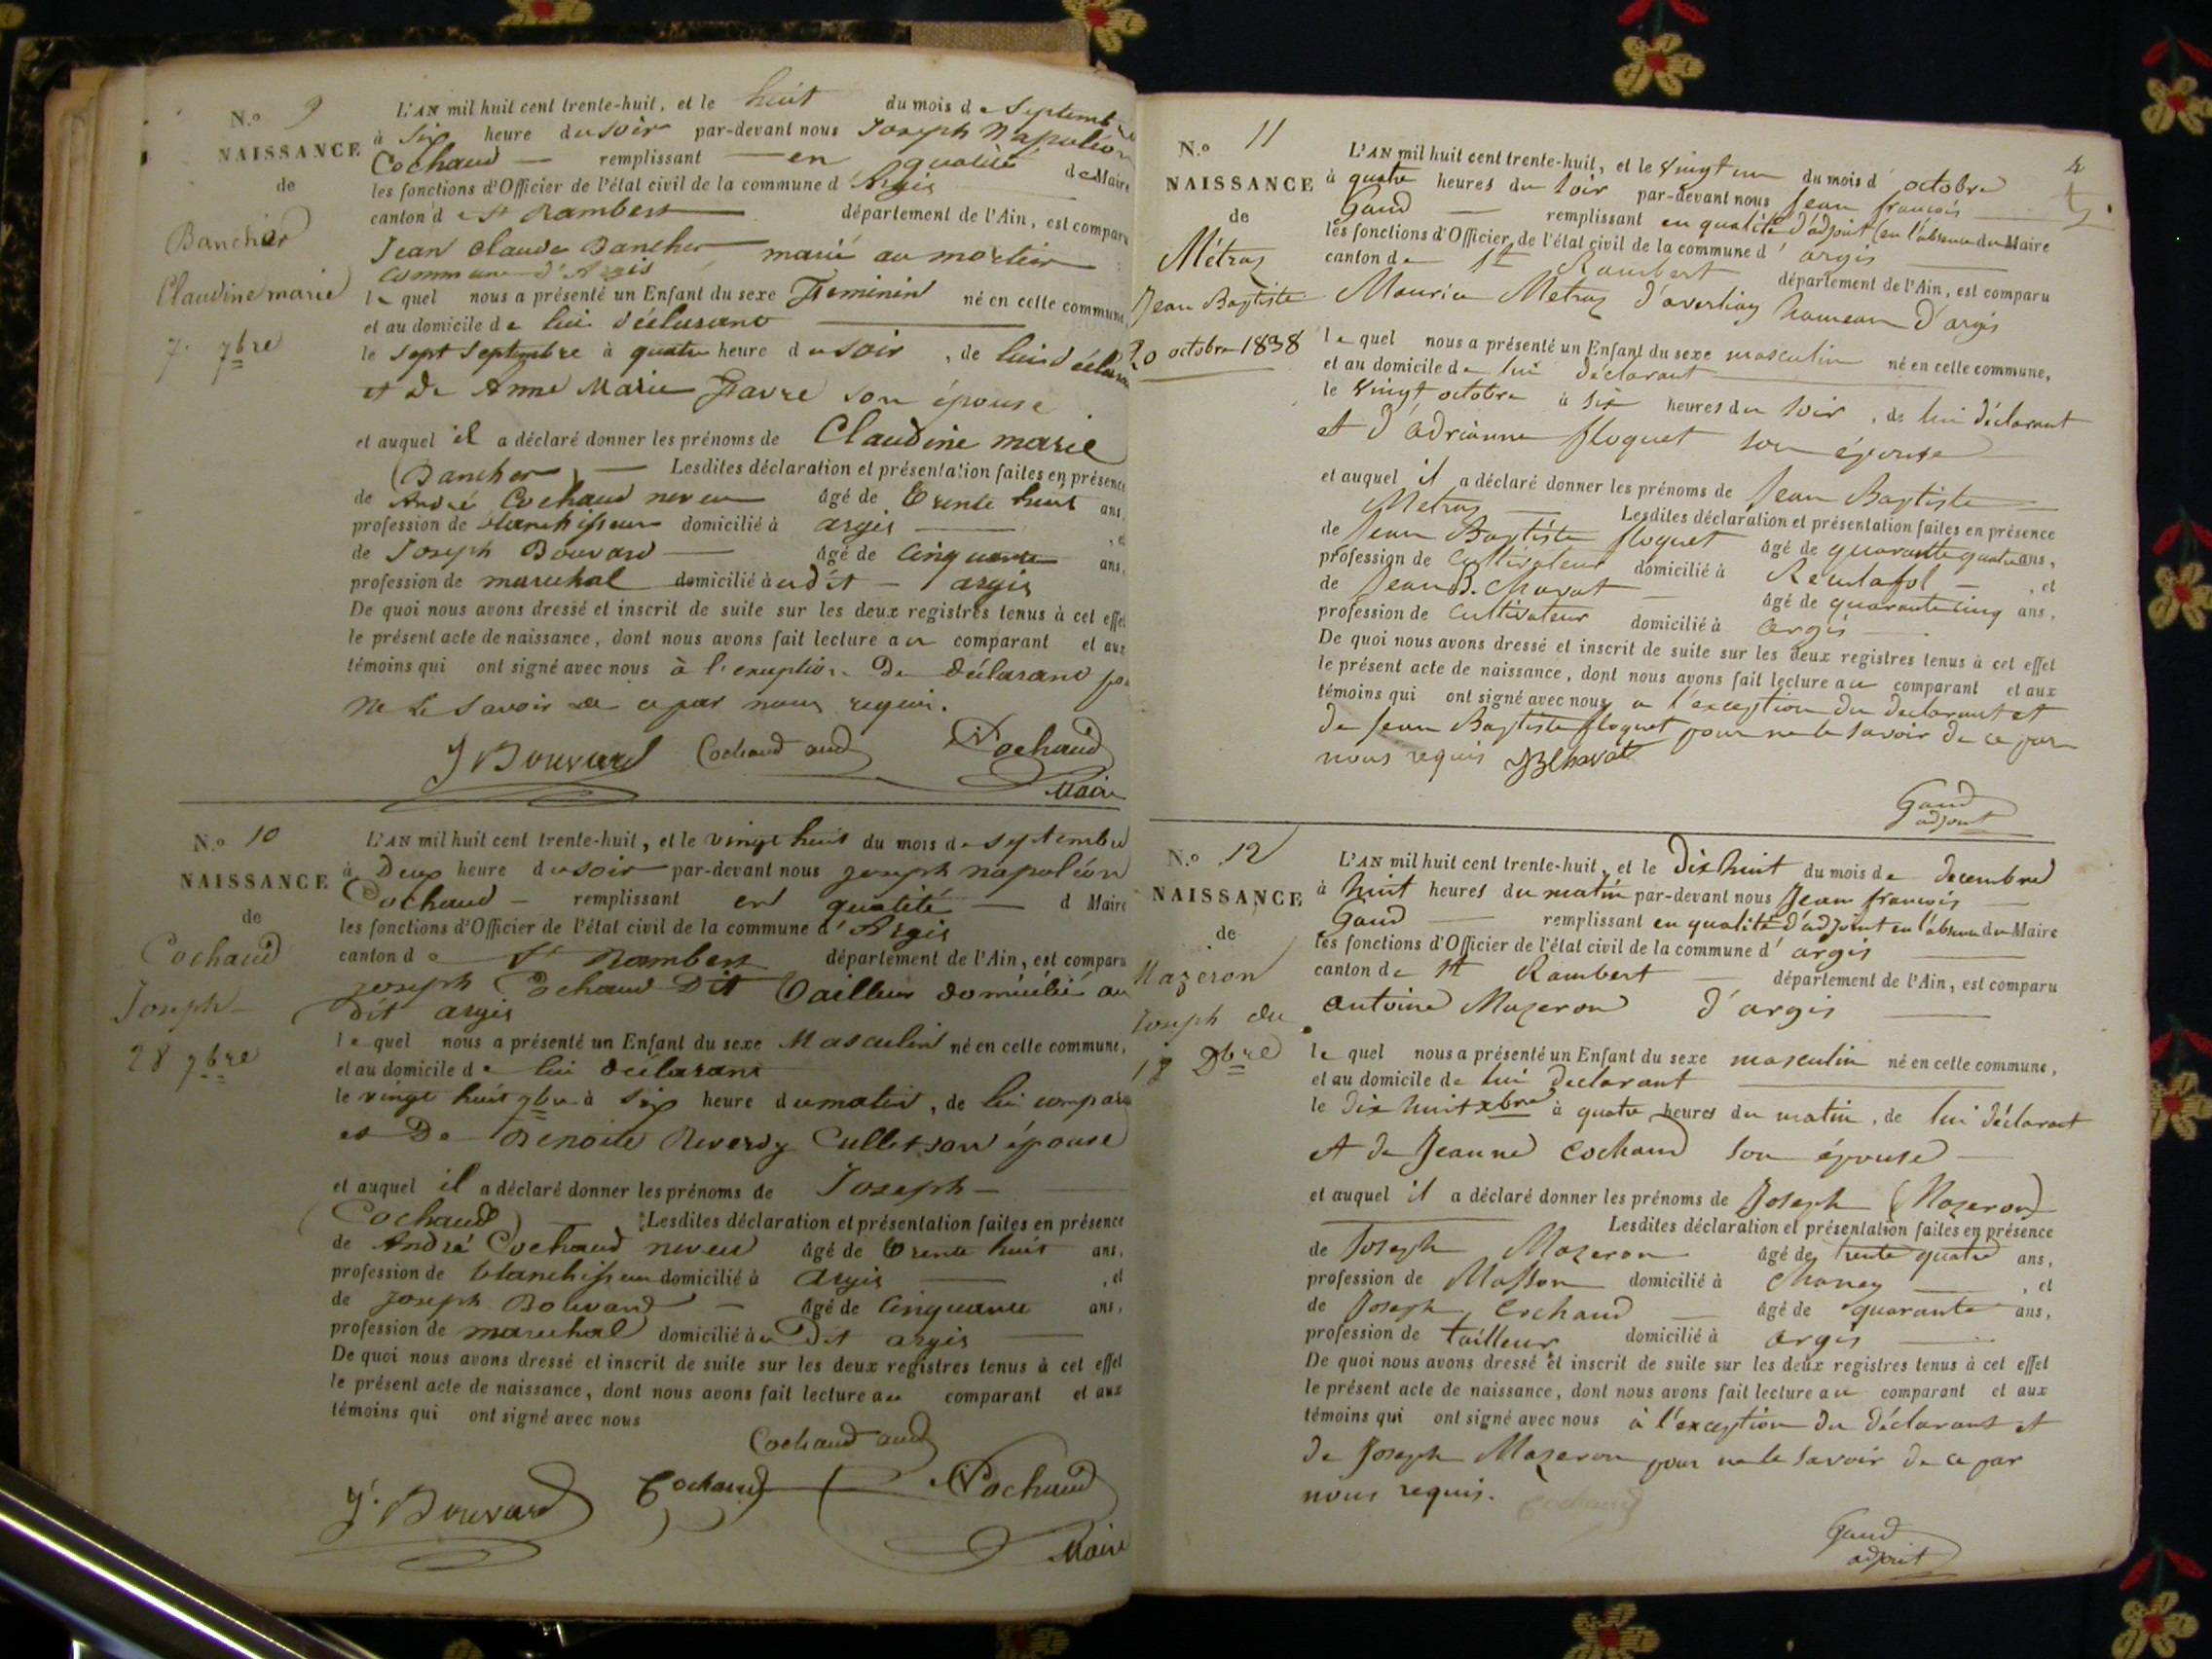 N.o 9
NAISSANCE
de
Bancher
Claudine marie
7. 7bre
L'AN mil huit cent trente-huit, et le huit du mois de Septembre
à Six heure du soir par-devant nous Joseph Napoléon
Cochaud — remplissant — en qualité de Maire
les fonctions d'Officier de l'état civil de la commune d'Argis
canton de St Rambert département de l'Ain, est comparu
Jean Claude Bancher marié au mortier
commune d'Argis
lequel nous a présenté un Enfant du sexe Feminin né en cette commune,
et au domicile de lui déclarant
le Sept Septembre à quatre heure du soir, de lui déclarant
et De Anne Marie Favre son épouse
et auquel il a déclaré donner les prénoms de Claudine marie
(Bancher) — Lesdites déclaration et présentation faites en présence
de André Cochaud neveu âgé de trente huit ans,
profession de blanchisseur domicilié à argis , et
de Joseph Bouvard âgé de Cinquante ans,
profession de marechal domicilié à udit — argis
De quoi nous avons dressé et inscrit de suite sur les deux registres tenus à cet effet
le présent acte de naissance, dont nous avons fait lecture au comparant et aux
témoins qui ont signé avec nous à l'exeption Du déclarant po
ne le Savoir de ce par nous requi.
J Bouvard Cochaud and NCochaud
Maire
N.o 10
NAISSANCE
de
Cochaud
Joseph
28 7bre
L'AN mil huit cent trente-huit, et le vingt huit du mois de septembre
à Deux heure du soir par-devant nous joseph napoléon
Cochaud — remplissant en qualité — d Maire
les fonctions d'Officier de l'état civil de la commune d'Argis
canton de St Rambert département de l'Ain, est comparu
joseph Cochaud Dit Tailleur domicilié au
Dit argis
lequel nous a présenté un Enfant du sexe Masculin né en cette commune,
et au domicile de lui déclarant
le vingt huit 7bre à Six heure du matin, de lui
et De Benoite Reverdy Cullet son épouse
et auquel il a déclaré donner les prénoms de Joseph —
(Cochaud) — Lesdites déclaration et présentation faites en présence
de André Cochaud neveu âgé de trente huit ans,
profession de blanchisseur domicilié à Argis , et
de Joseph Bouvard — âgé de Cinquante ans,
profession de marechal domicilié à u Dit argis
De quoi nous avons dressé et inscrit de suite sur les deux registres tenus à cet effet
le présent acte de naissance, dont nous avons fait lecture au comparant et aux
témoins qui ont signé avec nous
Cochaud and
J. Bouvard Cochaud NCochaud
Maire
4
N.o 11
NAISSANCE
de
Métraz
Jean Baptiste
20 octobre 1838
L'AN mil huit cent trente-huit, et le vingt un du mois d'octobre
à quatre heures du soir par-devant nous Jean françois
Gaud — remplissant en qualité d'adjoint en l'absence du Maire
les fonctions d'Officier de l'état civil de la commune d'argis
canton de St Rambert département de l'Ain, est comparu
Maurice Metraz d'averliaz hameau d'argis
lequel nous a présenté un Enfant du sexe masculin né en cette commune,
et au domicile de lui déclarant
le vingt octobre à six heures du soir, de lui déclarant
et d'adrianne floquet son épouse
et auquel il a déclaré donner les prénoms de Jean Baptiste
Metraz — Lesdites déclaration et présentation faites en présence
de Jean Baptiste floquet âgé de quarante quatre ans,
profession de cultivateur domicilié à , et
de Jean B. Chavat âgé de quarante cinq ans,
profession de cultivateur domicilié à argis
De quoi nous avons dressé et inscrit de suite sur les deux registres tenus à cet effet
le présent acte de naissance, dont nous avons fait lecture au comparant et aux
témoins qui ont signé avec nous a l'exception du declarant et
de Jean Baptiste floquet pour ne le savoir de ce par
nous requis JBChavat
Gaud
adjoint
N.o 12
NAISSANCE
de
Mazeron
Joseph du
18 Dbre
L'AN mil huit cent trente-huit, et le dix huit du mois de decembre
à huit heures du matin par-devant nous Jean françois
Gaud — remplissant en qualité d'adjoint en l'absence du Maire
les fonctions d'Officier de l'état civil de la commune d'argis
canton de St Rambert — département de l'Ain, est comparu
antoine Mazeron d'argis
lequel nous a présenté un Enfant du sexe masculin né en cette commune,
et au domicile de lui declarant
le dix huit xbre à quatre heures du matin, de lui déclarant
et de Jeanne Cochaud son épouse —
et auquel il a déclaré donner les prénoms de Joseph (Mazeron)
Lesdites déclaration et présentation faites en présence
de Joseph Mazeron âgé de trente quatre ans,
profession de Masson domicilié à Chaney , et
de Joseph Cochaud âgé de quarante ans,
profession de tailleur domicilié à argis
De quoi nous avons dressé et inscrit de suite sur les deux registres tenus à cet effet
le présent acte de naissance, dont nous avons fait lecture au comparant et aux
témoins qui ont signé avec nous à l'exception du déclarant et
de Joseph Mazeron pour ne le savoir de ce par
nous requis. Cochaud
Gaud
adjoint